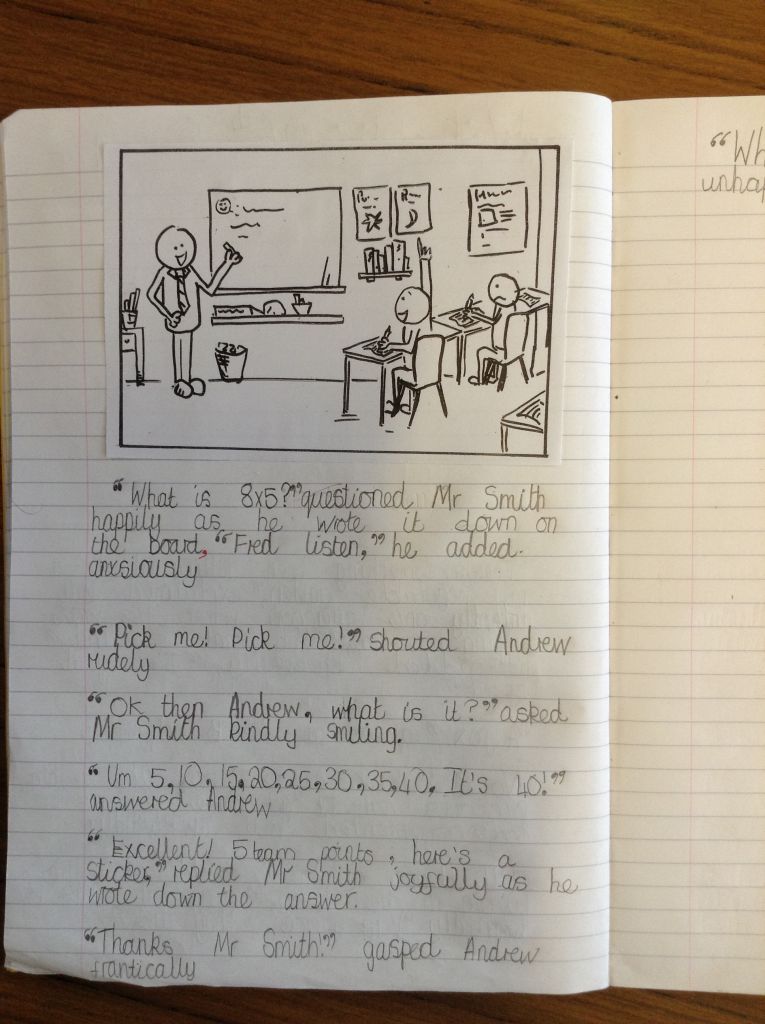 "What is 8x5?" questioned Mr Smith
happily as he wrote it down on
the board, "Fred listen," he added.
anxsiously
"Pick me! Pick me!" shouted Andrew
rudely
"Ok then Andrew, what is it?" asked
Mr Smith kindly smiling.
"Um 5,10,15,20,25,30,35,40. It's 40!"
answered Andrew
"Excellent! 5 team points, here's a
sticker," replied Mr Smith joyfully as he
wrote down the answer.
"Thanks Mr Smith!" gasped Andrew
frantically
"Wh
unhap